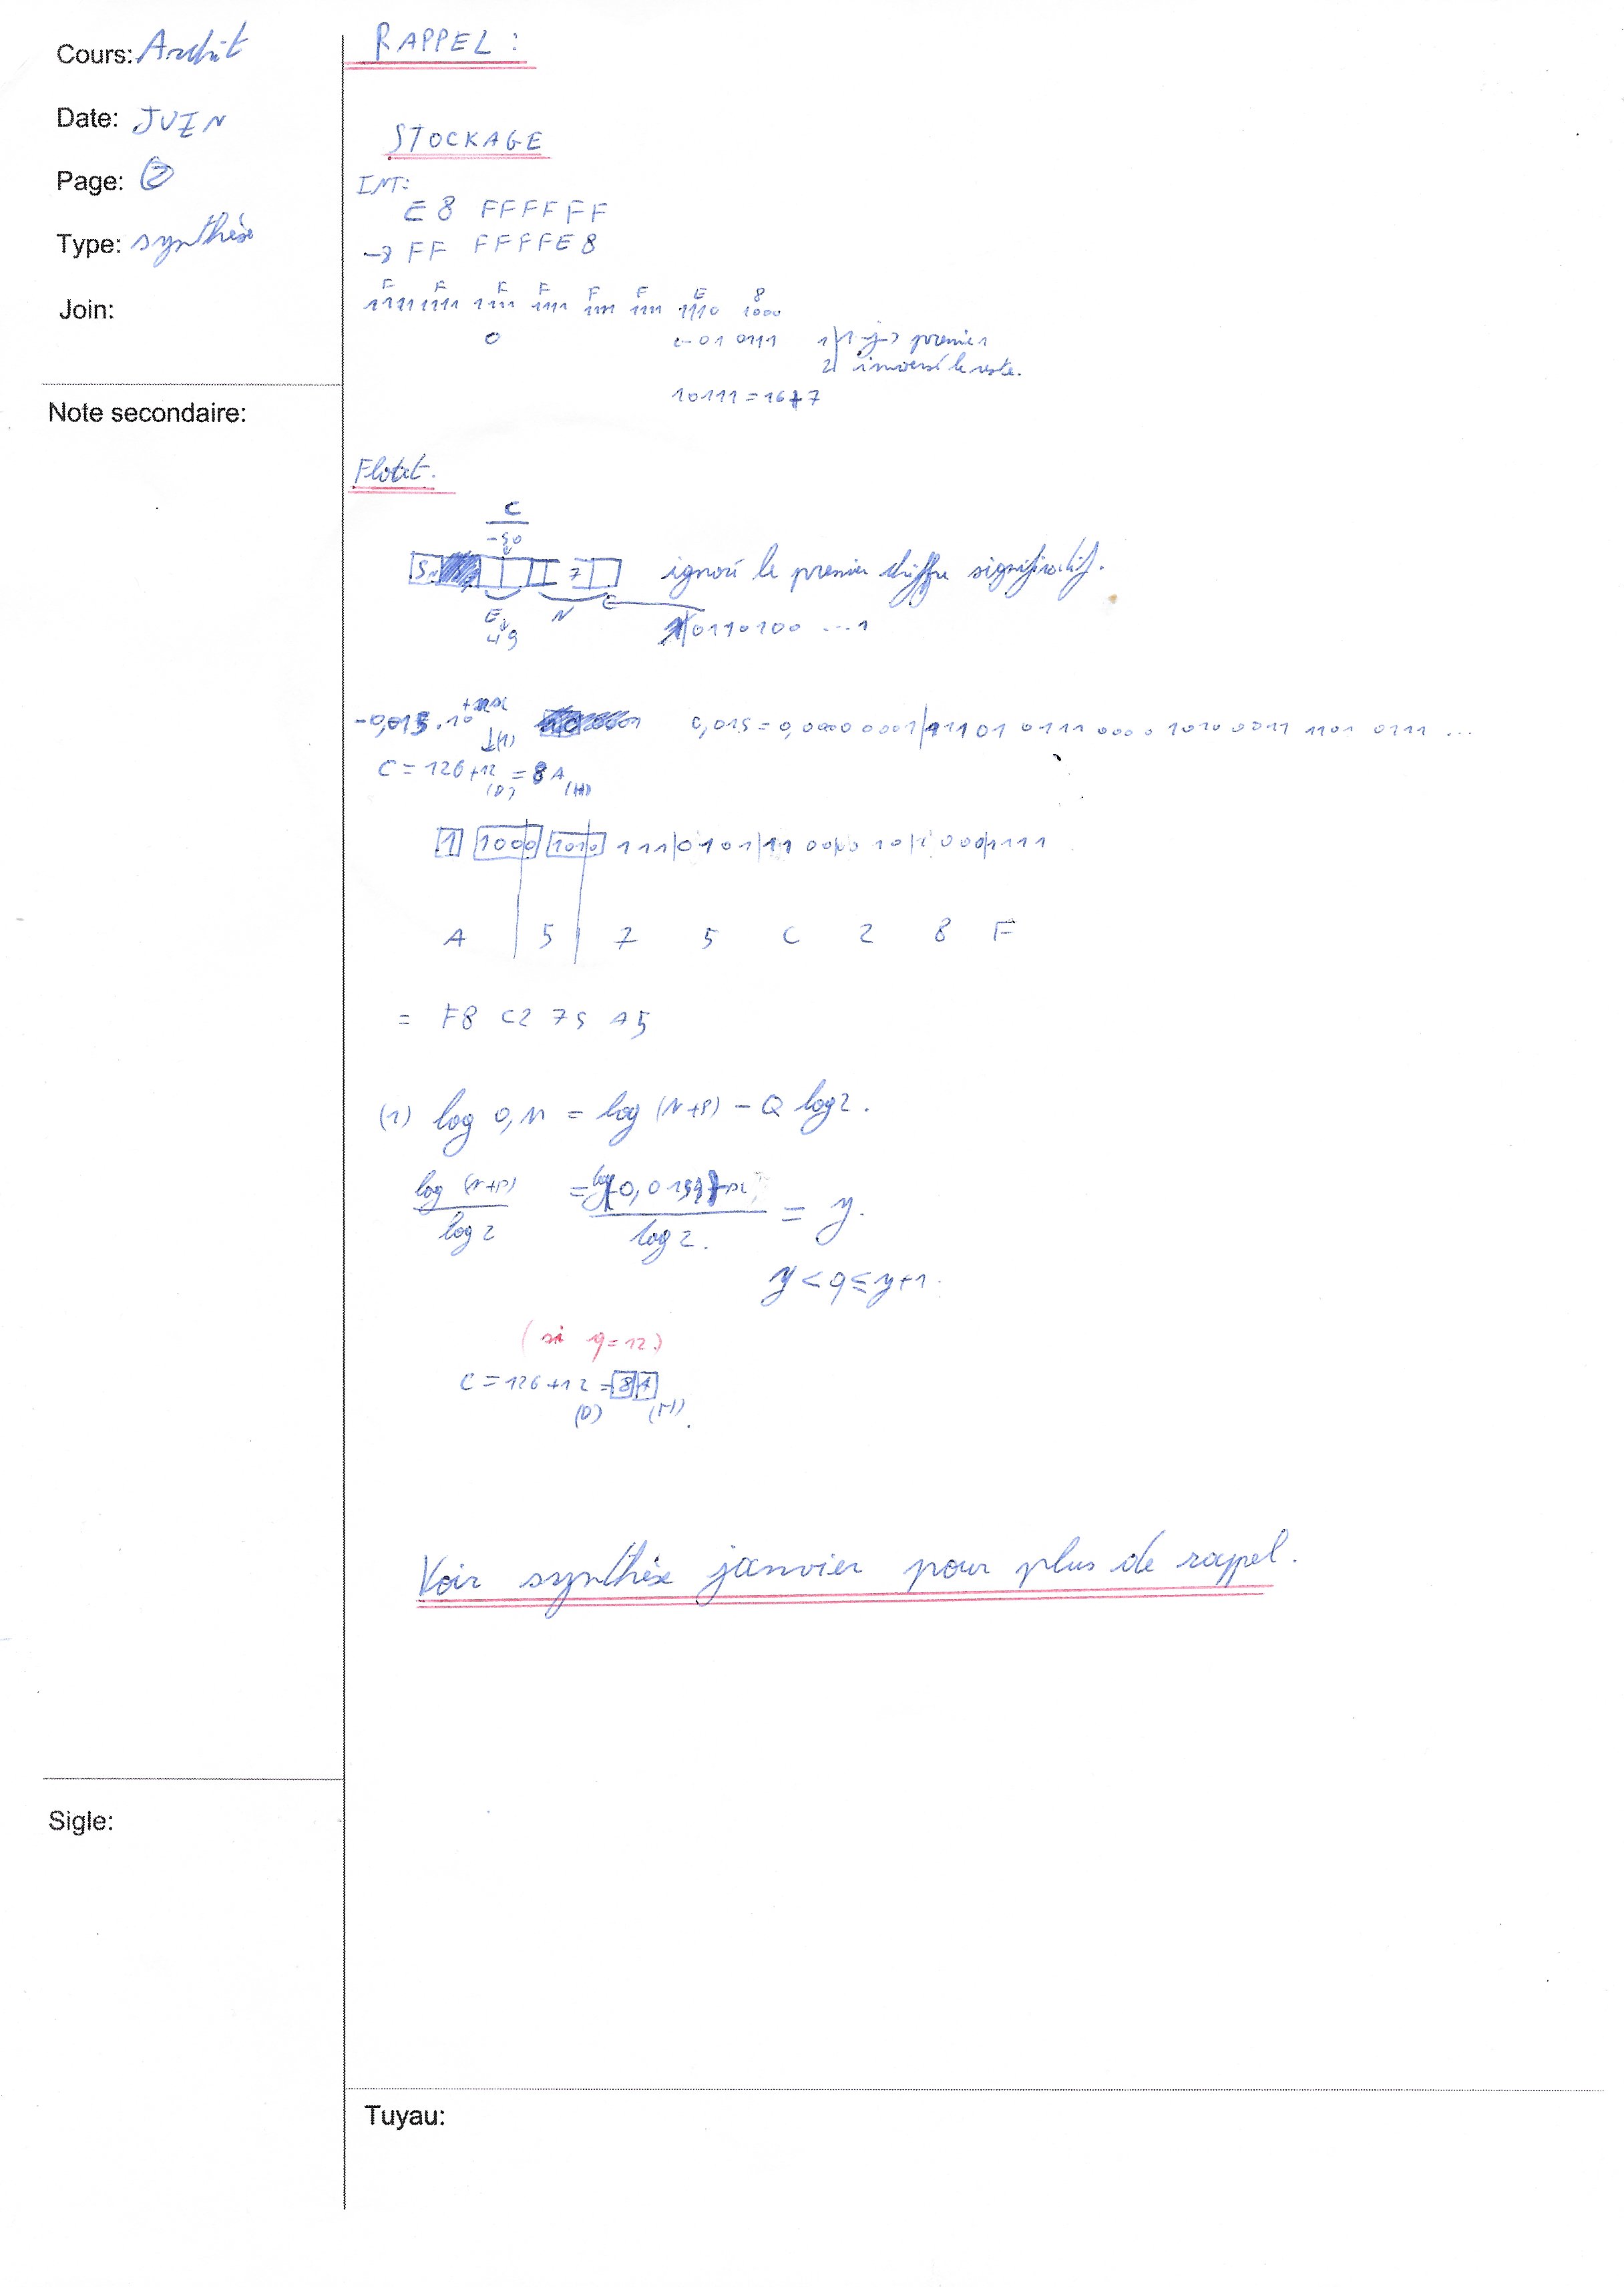 Cours: Archit
Date: JUIN
Page: ②
Type: synthèse
Join:
Note secondaire:
Sigle:
RAPPEL :
STOCKAGE
INT:
E8 FFFFFF
→ FF FFFFE8
F F F F F F E 8
1111 1111 1111 1111 1111 1111 1110 1000
0 ← 01 0111 1) premier
2) inversé le reste.
10111 = 16+7
Flotat.
C
-50
S
E N
49
ignoré le premier chiffre significatif.
1|0110100 ...1
-0,015 . 10 0,015 = 0,0000 0001|11101 0111 0000 1010 0011 1101 0111 ...
↓(1)
C = 126 + 12 = 8A
(D) (H)
1 1000 1010 111|0101|11 00|00 10|1 000|1111
A 5 7 5 C 2 8 F
= F8 C2 75 A5
(1) log 0,M = log (N+P) - Q log 2.
log (N+P) / log 2 = / log 2. = y.
y < q ≤ y+1.
(si q=12)
C = 126 + 12 = 8A
(D) (H)
Voir synthèse janvier pour plus de rappel.
Tuyau: